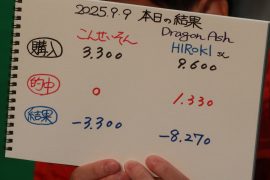 2025.9.9 本日の結果
こんせいそん Dragon Ash HIROKI
購入 3,300 9,600
的中 0 1,330
結果 -3,300 -8,270